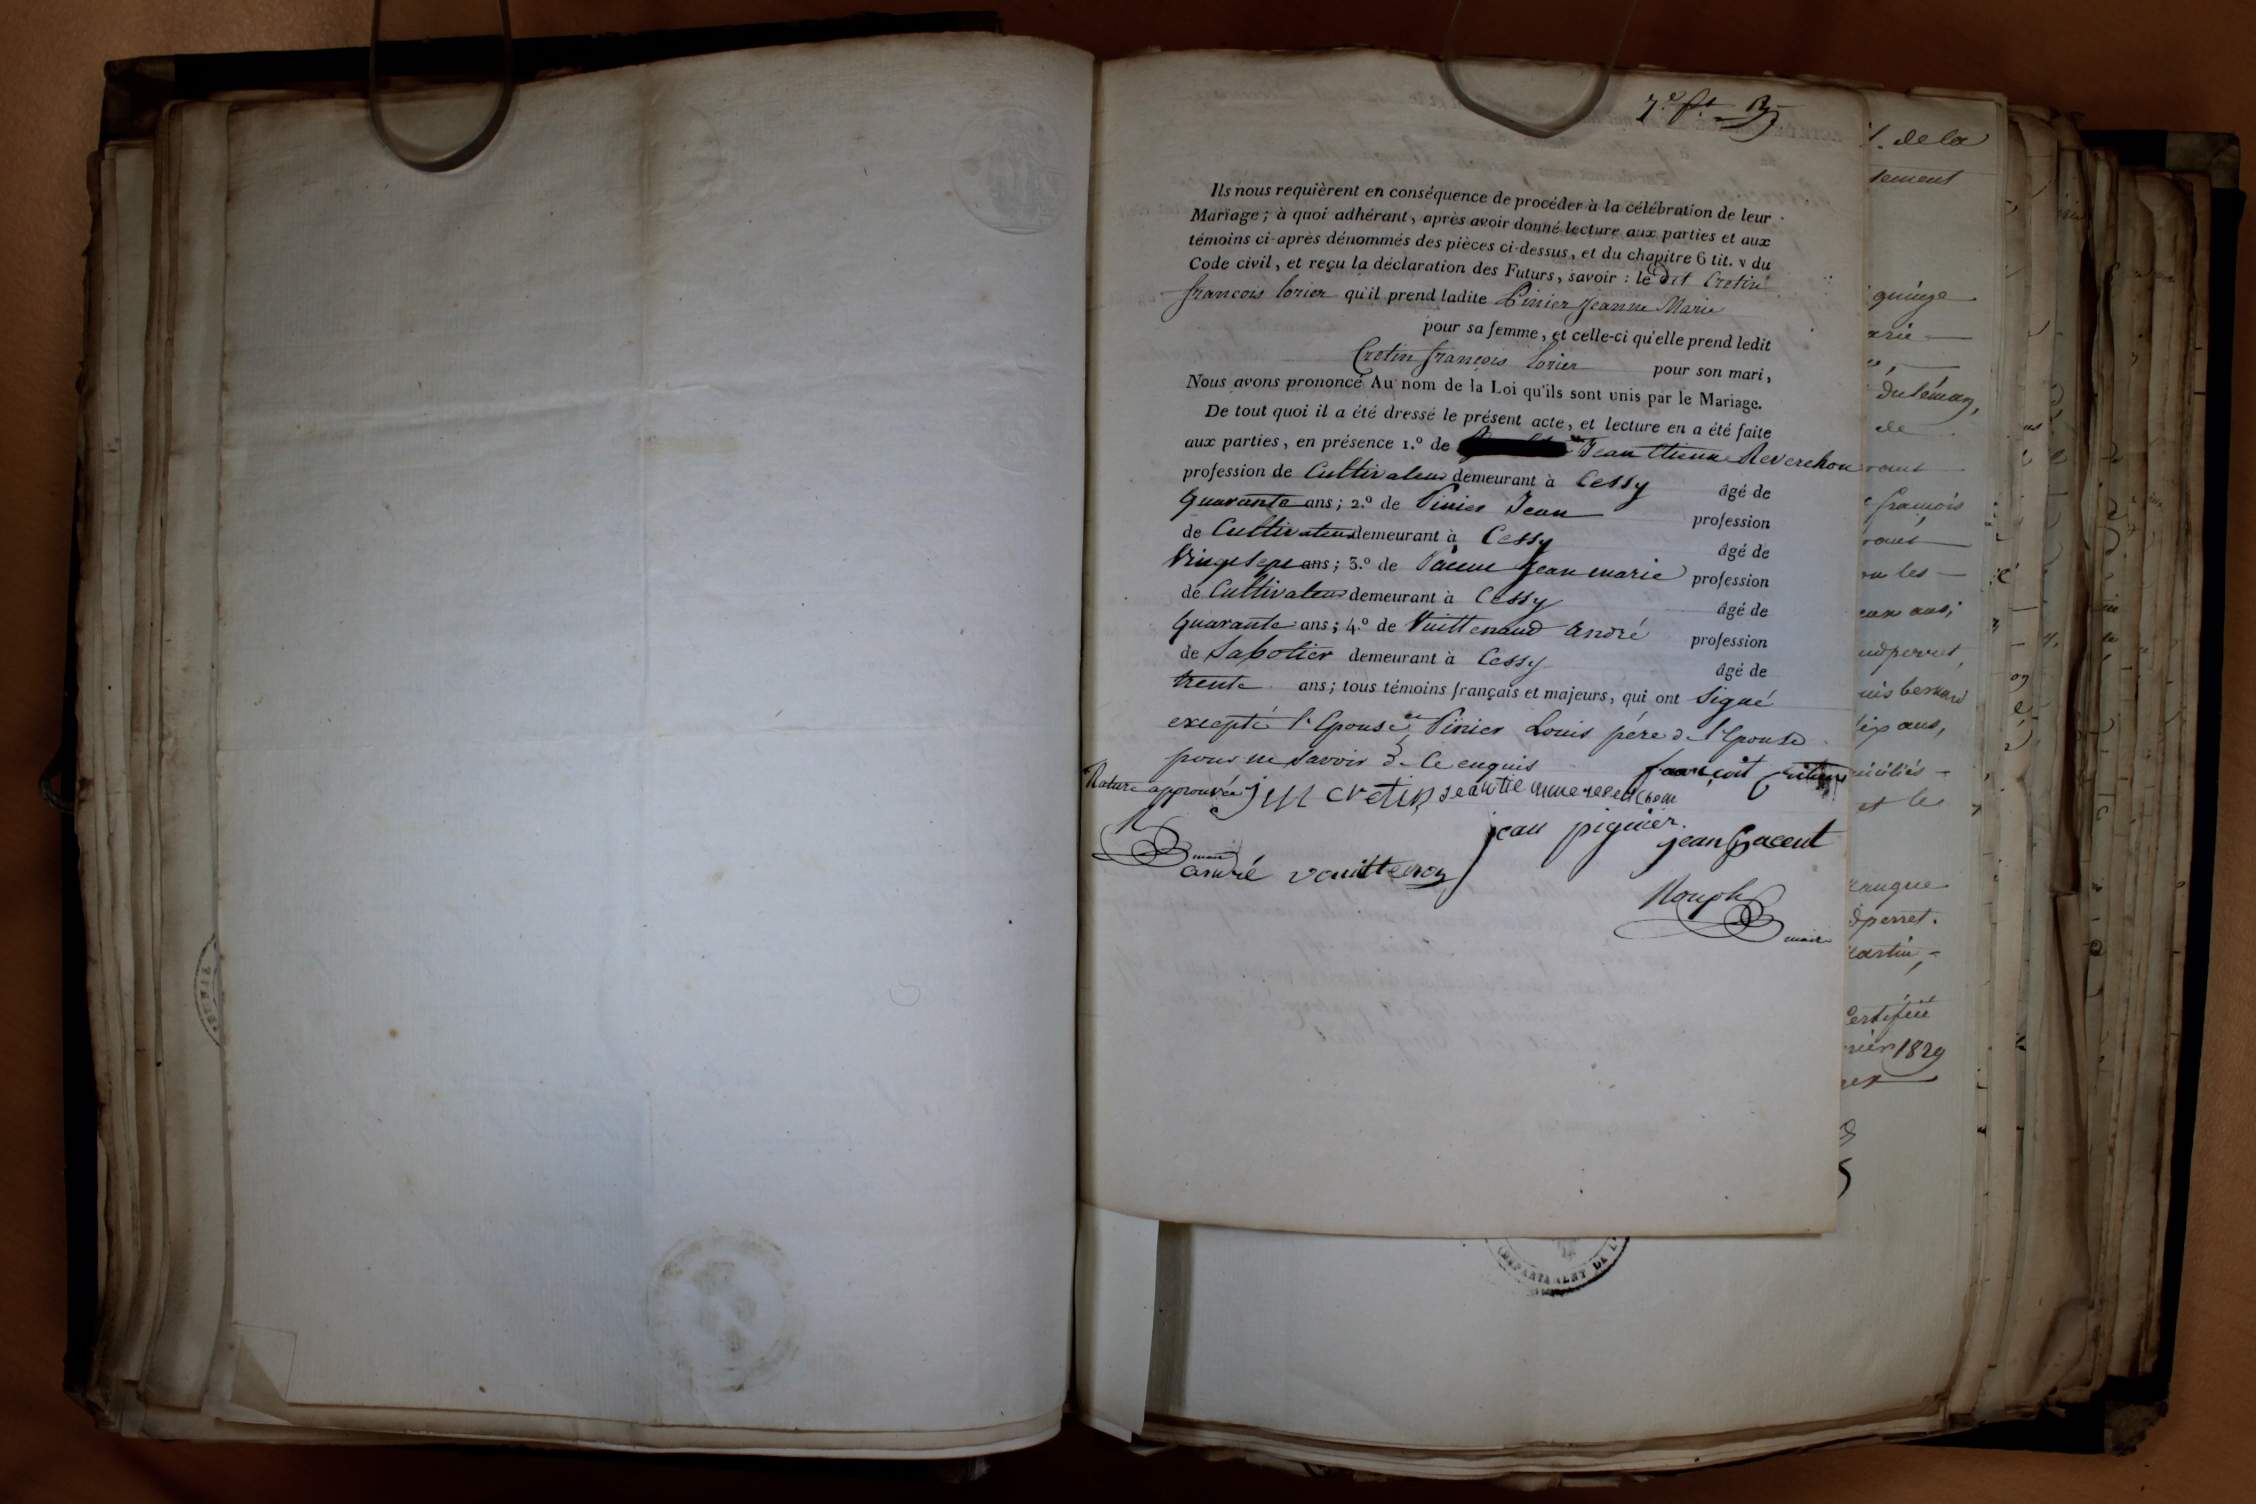 7.e f.t
Ils nous requièrent en conséquence de procéder à la célébration de leur
Mariage; à quoi adhérant, après avoir donné lecture aux parties et aux
témoins ci-après dénommés des pièces ci-dessus, et du chapitre 6 tit. v du
Code civil, et reçu la déclaration des Futurs, savoir : le dit Cretin
francois lorier qu'il prend ladite Pinier Jeanne Marie
pour sa femme, et celle-ci qu'elle prend ledit
Cretin françois lorier pour son mari,
Nous avons prononcé Au nom de la Loi qu'ils sont unis par le Mariage.
De tout quoi il a été dressé le présent acte, et lecture en a été faite
aux parties, en présence 1.º de Jean Etienne Reverchon
profession de Cultivateur demeurant à Cessy âgé de
quarante ans; 2.º de Pinier Jean profession
de Cultivateur demeurant à Cessy âgé de
Vingt sept ans; 3.º de Jean marie profession
de Cultivateur demeurant à Cessy âgé de
quarante ans; 4.º de Vuittenaud André profession
de Sabotier demeurant à Cessy âgé de
trente ans; tous témoins français et majeurs, qui ont Signé
excepté l'Epouse et Pinier Louis père de l'Epouse
pour ne Savoir de ce enquis
Rature approuvée
françoit
J m cretin
jean pignier
jean pacent
maire
andré vouittenon
Rouph
maire
t. de la
tement
quinze
arie
du Léman,
de
françois
les
ans;
udperret,
uis bernard
dix ans,
et le
dperret.
martin,
Certifié
1829
DÉPARTEMENT DE L'